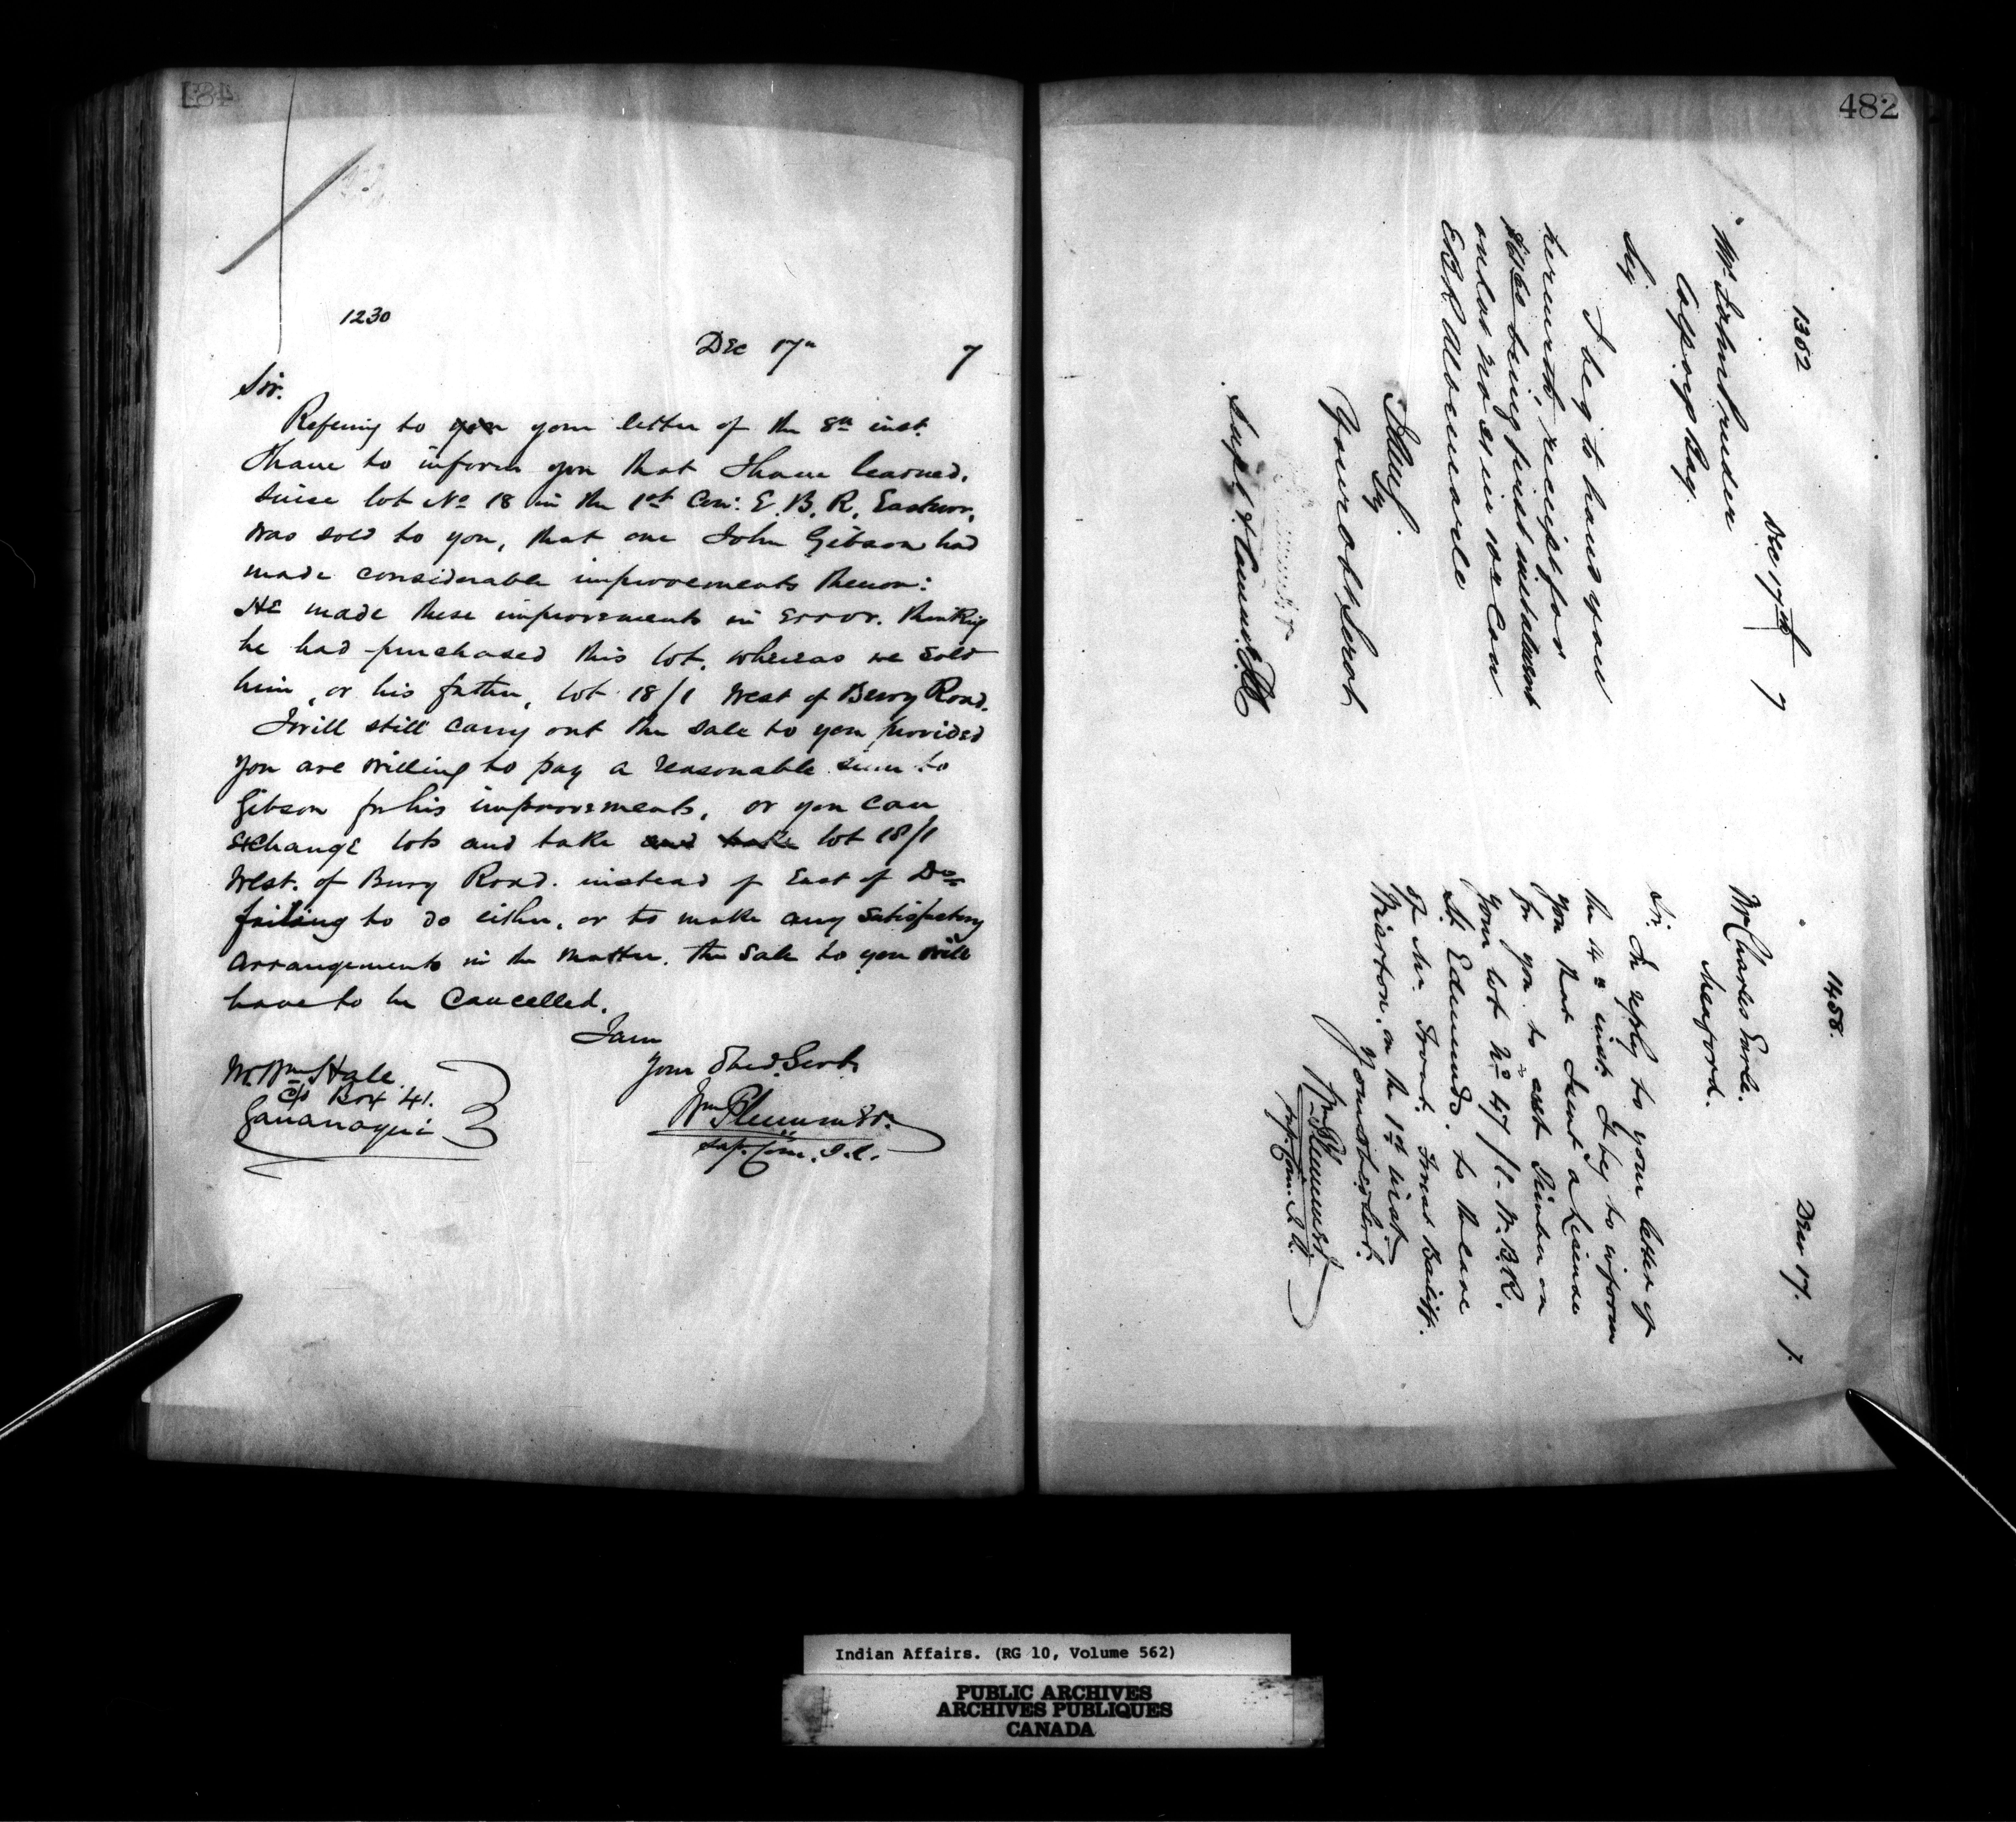 481
1230
Dec 17th 7
Sir.
Refering to your your letter of the 8th inst.
I have to inform you that I have learned,
since lot No 18 in the 1st Con: E. B. R. Eastnor,
was sold to you, that one John Gibson had
made considerable improvements thereon:
He made these improvements in error. thinking
he had purchased this lot, whereas we sold
him, or his father, lot 18/1 West of Bury Road.
I will still carry out the sale to you provided
you are willing to pay a reasonable sum to
Gibson for his improvements, or you can
exchange lots and take and take lot 18/1
West. of Bury Road. instead of East of Do
failing to do either, or to make any satisfactory
arrangements in the matter, the sale to you will
have to be cancelled.
I am
Your Obed. Servt.
Wm Plummer
Sup. Com. I. A.
Mr. Wm Hale
Box 41.
Gananoque
482
1302
Dec 17th 7
Mr John
Colpoys Bay
Sir
I beg to hand you
herewith, receipt for
being first instalment
on Lot No in Con
EBR Albemarle
I am Sir
Your obt Servt
Supt & Commr
1458.
Dec 17. 7.
Mr Charles Earle.
Meaford.
Sir,
In reply to your letter of
the 14th inst. I beg to inform
you that I sent a License
for you to cut Timber on
your lot No 47/1. W. B. R.
St. Edmunds. to the care
of Mr. Bailiff.
Wiarton. on the 1st inst.
Your Obed Servt.
Wm Plummer
Sup. Com. I. A.
Indian Affairs. (RG 10, Volume 562)
PUBLIC ARCHIVES
ARCHIVES PUBLIQUES
CANADA